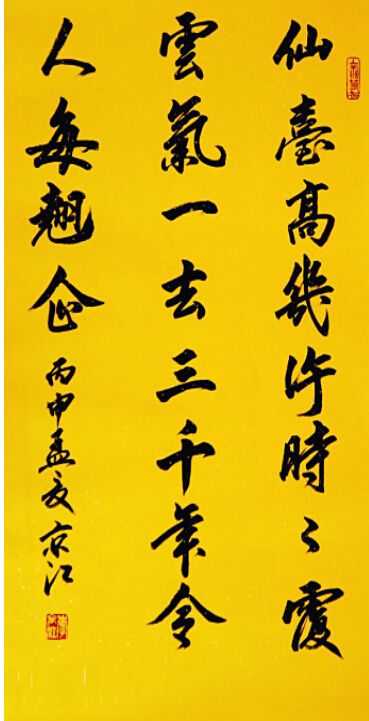 仙臺高幾許時々覆
雲氣一去三千年令
人每翹企
丙申孟夏京江